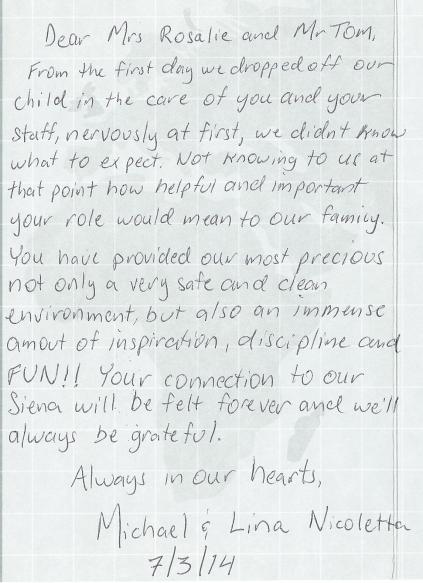 Dear Mrs Rosalie and Mr Tom,
From the first day we dropped off our
child in the care of you and your
staff, nervously at first, we didn't know
what to expect. Not knowing to us at
that point how helpful and important
your role would mean to our family.
You have provided our most precious
not only a very safe and clean
environment, but also an immense
amout of inspiration, discipline and
FUN!! Your connection to our
Siena will be felt forever and we'll
always be grateful.
Always in our hearts,
Michael & Lina Nicoletta
7/3/14